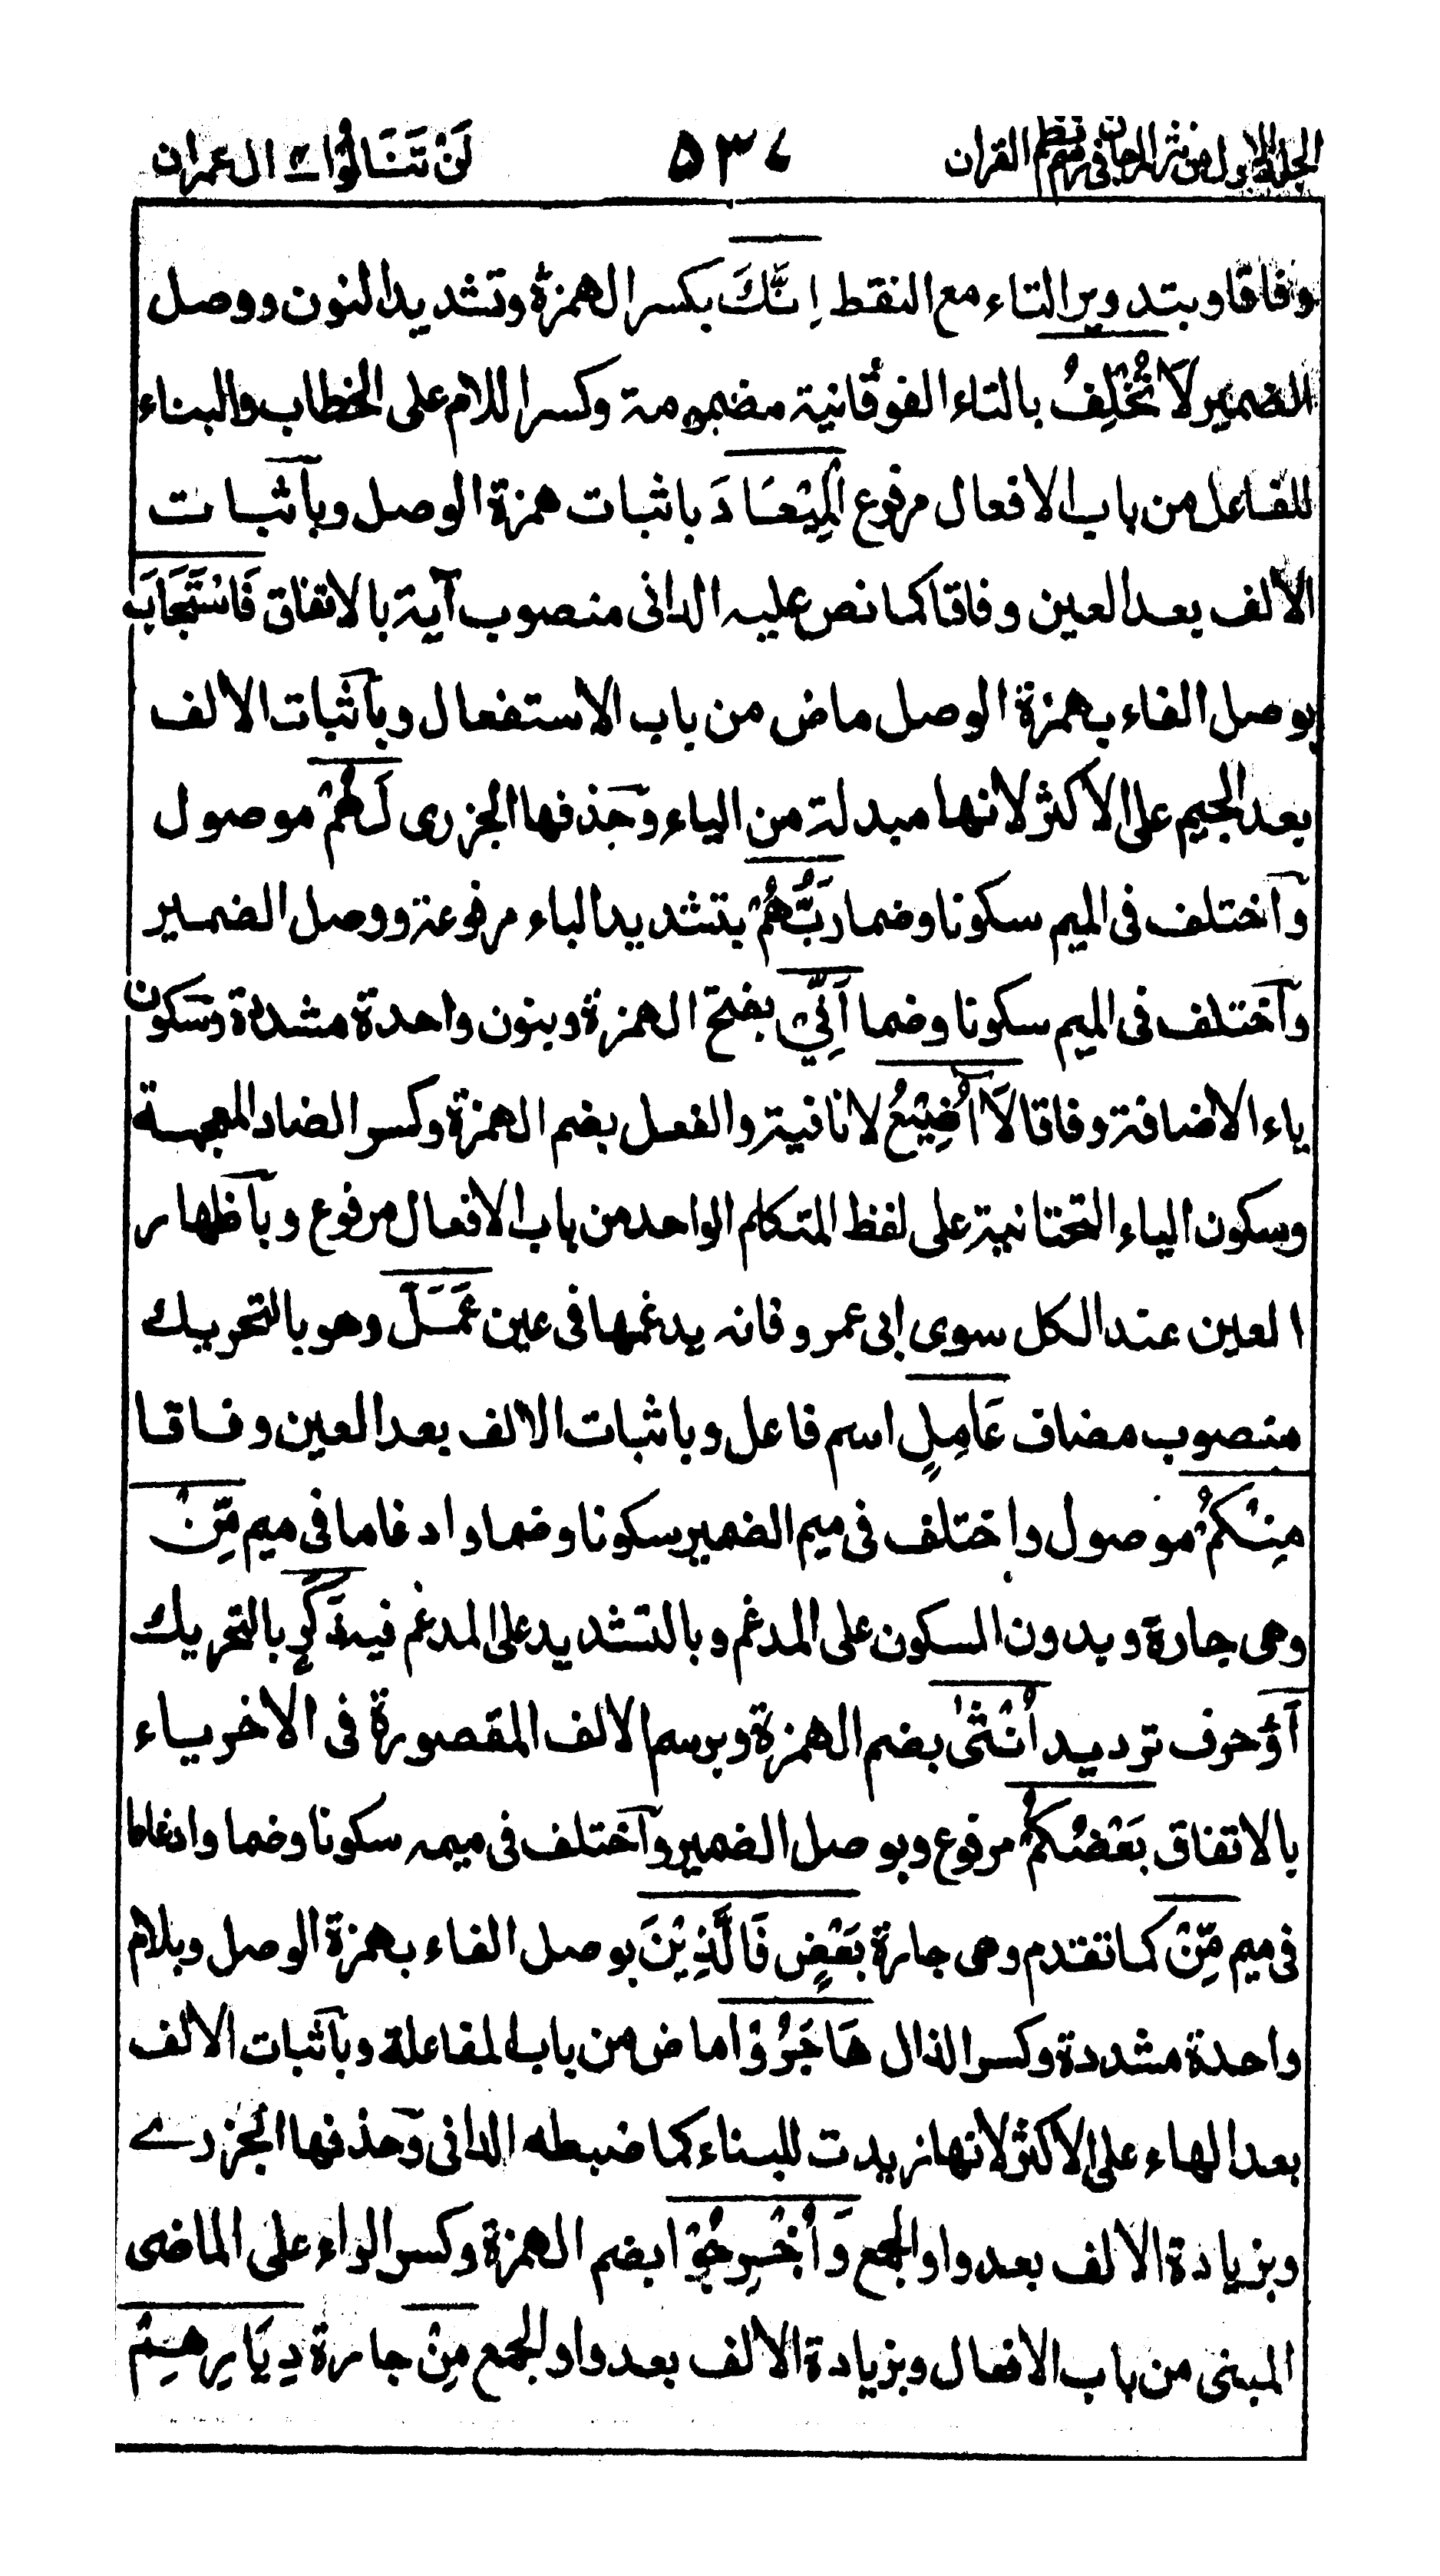 الجلد الاول من نثر المرجان في رسم نظم القران ۵۳۷ لَنْ تَنَالُوا ٤ ال عمران
وفاقا وبتدوير التاء مع النقط اِنَّكَ بكسر الهمزة وتشديد النون ووصل
الضمير لَا تُخْلِفُ بالتاء الفوقانية مضمومة وكسر اللام على الخطاب والبناء
للفاعل من باب الافعال مرفوع الْمِيْعَادَ باثبات همزة الوصل وبآثبات
الالف بعد العين وفاقا كما نص عليه الدانى منصوب آية بالاتفاق فَاسْتَجَابَ
بوصل الفاء بهمزة الوصل ماض من باب الاستفعال وبآثبات الالف
بعد الجيم على الاكثر لانها مبدلة من الياء وحذفها الجزرى لَهُمْ موصول
وآختلف فى الميم سكونا وضما رَبُّهُمْ بتشديد الباء مرفوعة ووصل الضمير
وآختلف فى الميم سكونا وضما اَنِّيْ بفتح الهمزة وبنون واحدة مشددة وسكون
ياء الاضافة وفاقا لَا اُضِيْعُ لا نافية والفعل بضم الهمزة وكسر الضاد المعجمة
وسكون الياء التحتانية على لفظ المتكلم الواحد من باب الافعال مرفوع وبآظهار
العين عند الكل سوى ابى عمرو فانه يدغمها فى عين عَمَلَ وهو بالتحريك
منصوب مضاف عَامِلٍ اسم فاعل وباثبات الالف بعد العين وفاقا
مِنْكُمْ موصول واختلف فى ميم الضمير سكونا وضما وادغاما فى ميم مِّنْ
وهى جارة وبدون السكون على المدغم وبالتشديد على المدغم فيه ذَكَرٍ بالتحريك
اَوْ حرف ترديد اُنْثٰى بضم الهمزة وبرسم الالف المقصورة فى الاخر ياء
بالاتفاق بَعْضُكُمْ مرفوع وبوصل الضمير وآختلف فى ميمه سكونا وضما وادغاما
فى ميم مِّنْ كما تقدم وهى جارة بَعْضٍ فَالَّذِيْنَ بوصل الفاء بهمزة الوصل وبلام
واحدة مشددة وكسر الذال هَاجَرُوْا ماض من باب المفاعلة وبآثبات الالف
بعد الهاء على الاكثر لانها زيدت للبناء كما ضبطه الدانى وحذفها الجزرے
وبزيادة الالف بعد واو الجمع وَاُخْرِجُوْا بضم الهمزة وكسر الراء على الماضى
المبنى من باب الافعال وبزيادة الالف بعد واو الجمع مِنْ جارة دِيَارِهِمْ